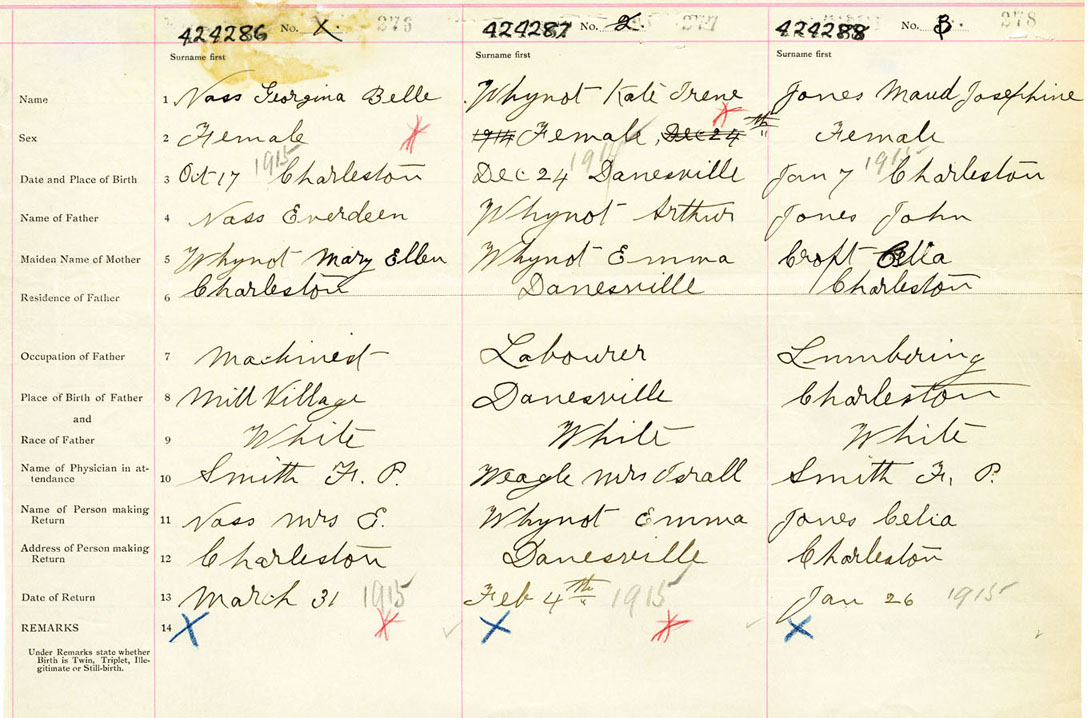 424286 No. X. 273
424287 No. 2. 277
424288 No. 3. 278
Surname first
Surname first
Surname first
Name 1 Nass Georgina Belle
Whynot Kate Irene
Jones Maud Josephine
Sex 2 Female
1914 Female, Dec 24 th
Female
Date and Place of Birth 3 Oct 17 1915 Charleston
Dec 24 1914 Danesville
Jan 7 1915 Charleston
Name of Father 4 Nass Everdeen
Whynot Arthur
Jones John
Maiden Name of Mother 5 Whynot Mary Ellen
Whynot Emma
Croft Celia
Residence of Father 6 Charleston
Danesville
Charleston
Occupation of Father 7 Machinest
Labourer
Lumbering
Place of Birth of Father 8 Mill Village
Danesville
Charleston
and
Race of Father 9 White
White
White
Name of Physician in at-
tendance 10 Smith F. P.
Weagle Mrs Israll
Smith F. P.
Name of Person making
Return 11 Nass Mrs E.
Whynot Emma
Jones Celia
Address of Person making
Return 12 Charleston
Danesville
Charleston
Date of Return 13 March 31 1915
Feb 4th 1915
Jan 26 1915
REMARKS 14 X
X
X
Under Remarks state whether
Birth is Twin, Triplet, Ille-
gitimate or Still-birth.